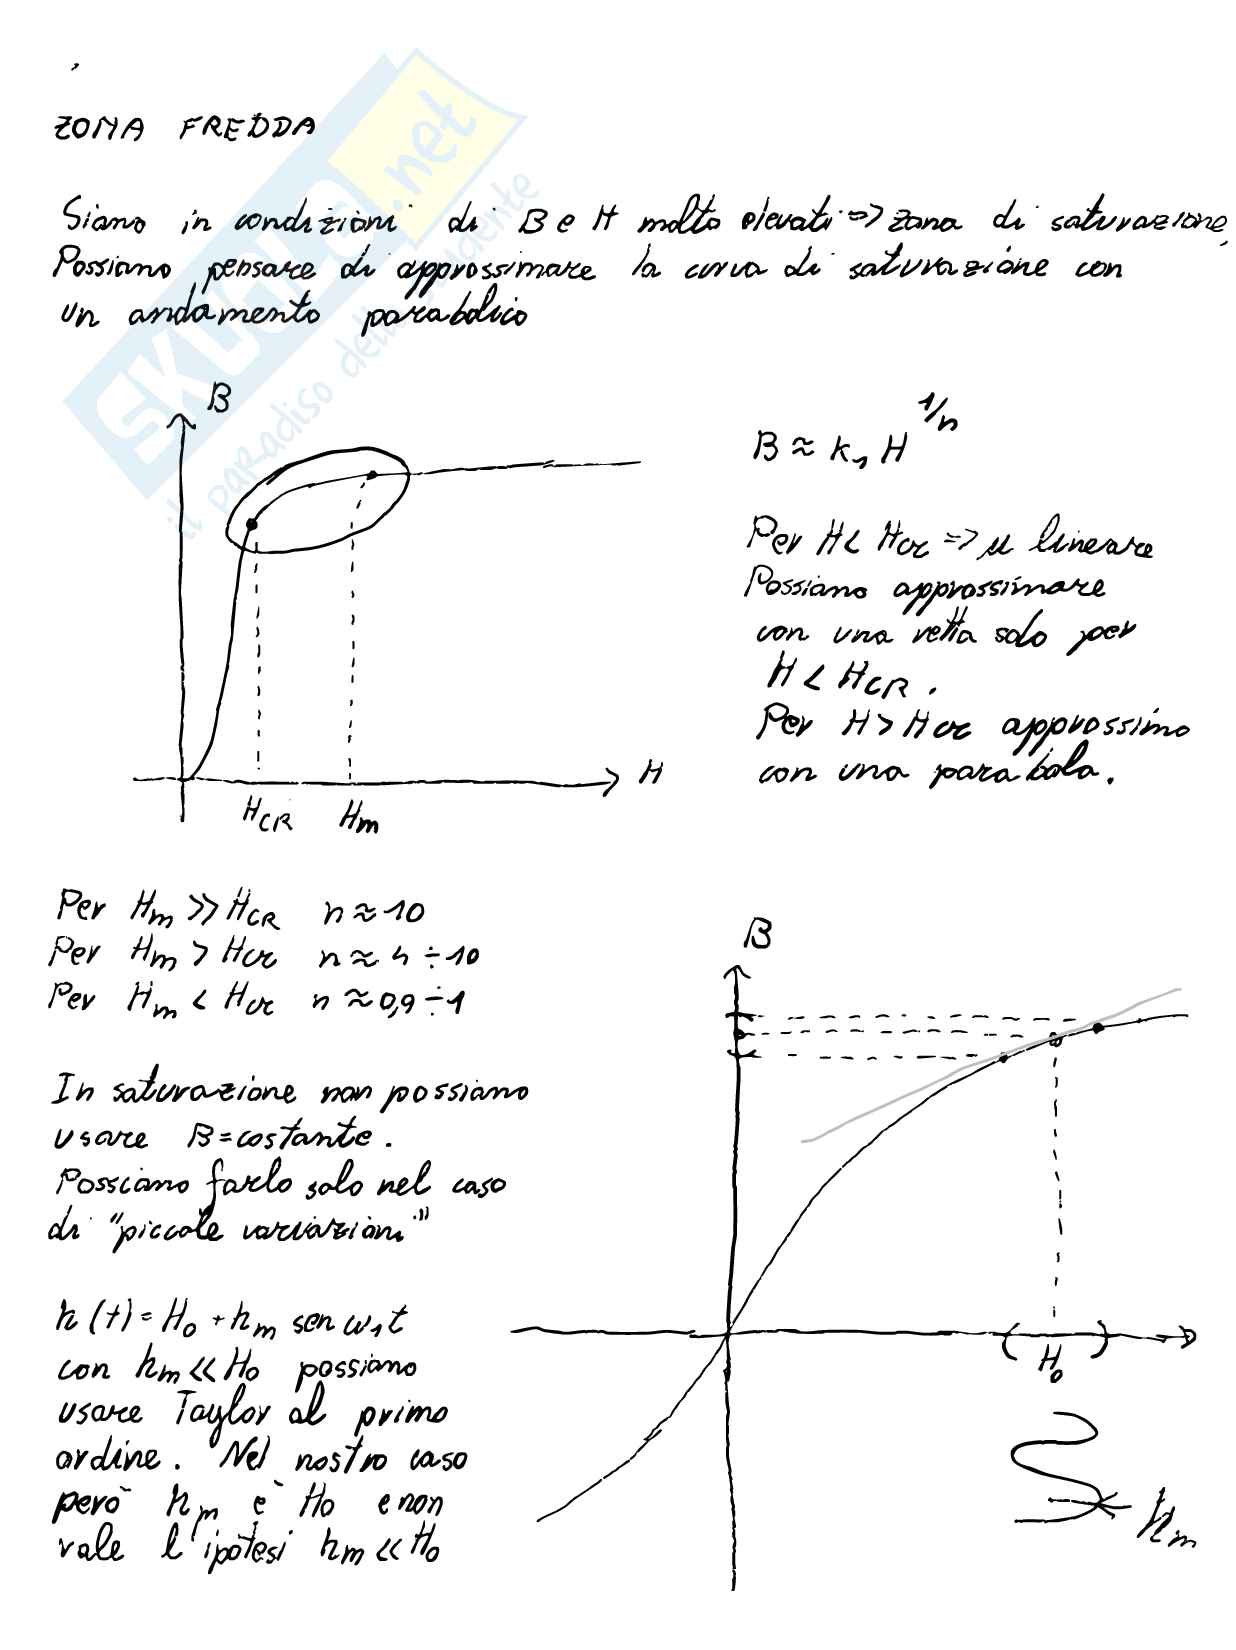 ZONA FREDDA
Siamo in condizioni di B e H molto elevati => zona di saturazione,
Possiamo pensare di approssimare la curva di saturazione con
un andamento parabolico
B
H
H_CR H_m
B ≈ k₁ H^1/n
Per H < Hcr => μ lineare
Possiamo approssimare
con una retta solo per
H < H_CR.
Per H > Hcr approssimo
con una parabola.
Per H_m >> H_CR n ≈ 10
Per H_m > Hcr n ≈ 4 ÷ 10
Per H_m < Hcr n ≈ 0,9 ÷ 1
In saturazione non possiamo
usare B = costante.
Possiamo farlo solo nel caso
di "piccole variazioni"
h(t) = H₀ + h_m sen ω₁t
con h_m << H₀ possiamo
usare Taylor al primo
ordine. Nel nostro caso
però h_m è H₀ e non
vale l'ipotesi h_m << H₀
B
( H₀ )
h_m
SKUOLA.net
il paradiso dello studente